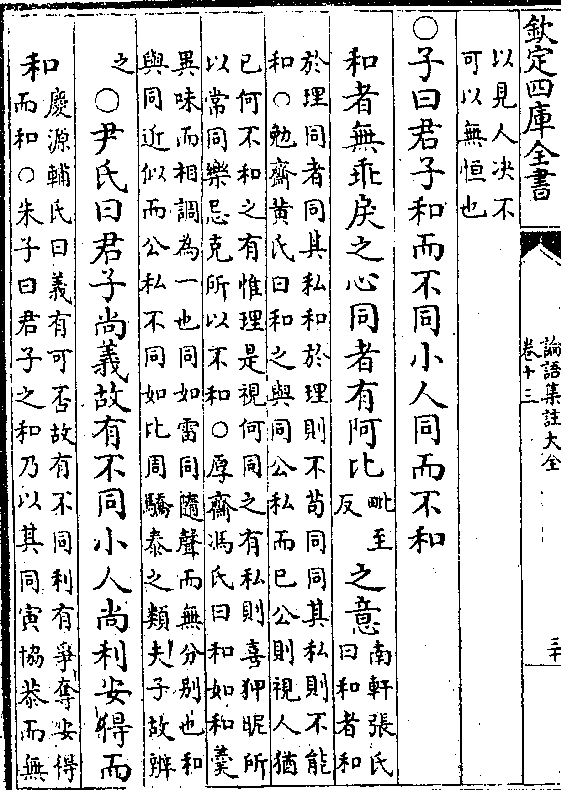 欽定四庫全書
論語集註大全
卷十三
以見人决不
可以無恒也
○子曰君子和而不同小人同而不和
和者無乖戾之心同者有阿比
毗至
反
之意
南軒張氏
曰和者和
於理同者同其私和於理則不苟同同其私則不能
和○勉齋黄氏曰和之與同公私而已公則視人猶
已何不和之有惟理是視何同之有私則喜狎昵所
以常同樂忌克所以不和○厚齋馮氏曰和如和羹
異味而相調為一也同如雷同隨聲而無分别也和
與同近似而公私不同如比周驕泰之類夫子故辨
之
○尹氏曰君子尚義故有不同小人尚利安得而
和
慶源輔氏曰義有可否故有不同利有爭奪安得
而和○朱子曰君子之和乃以其同寅協恭而無